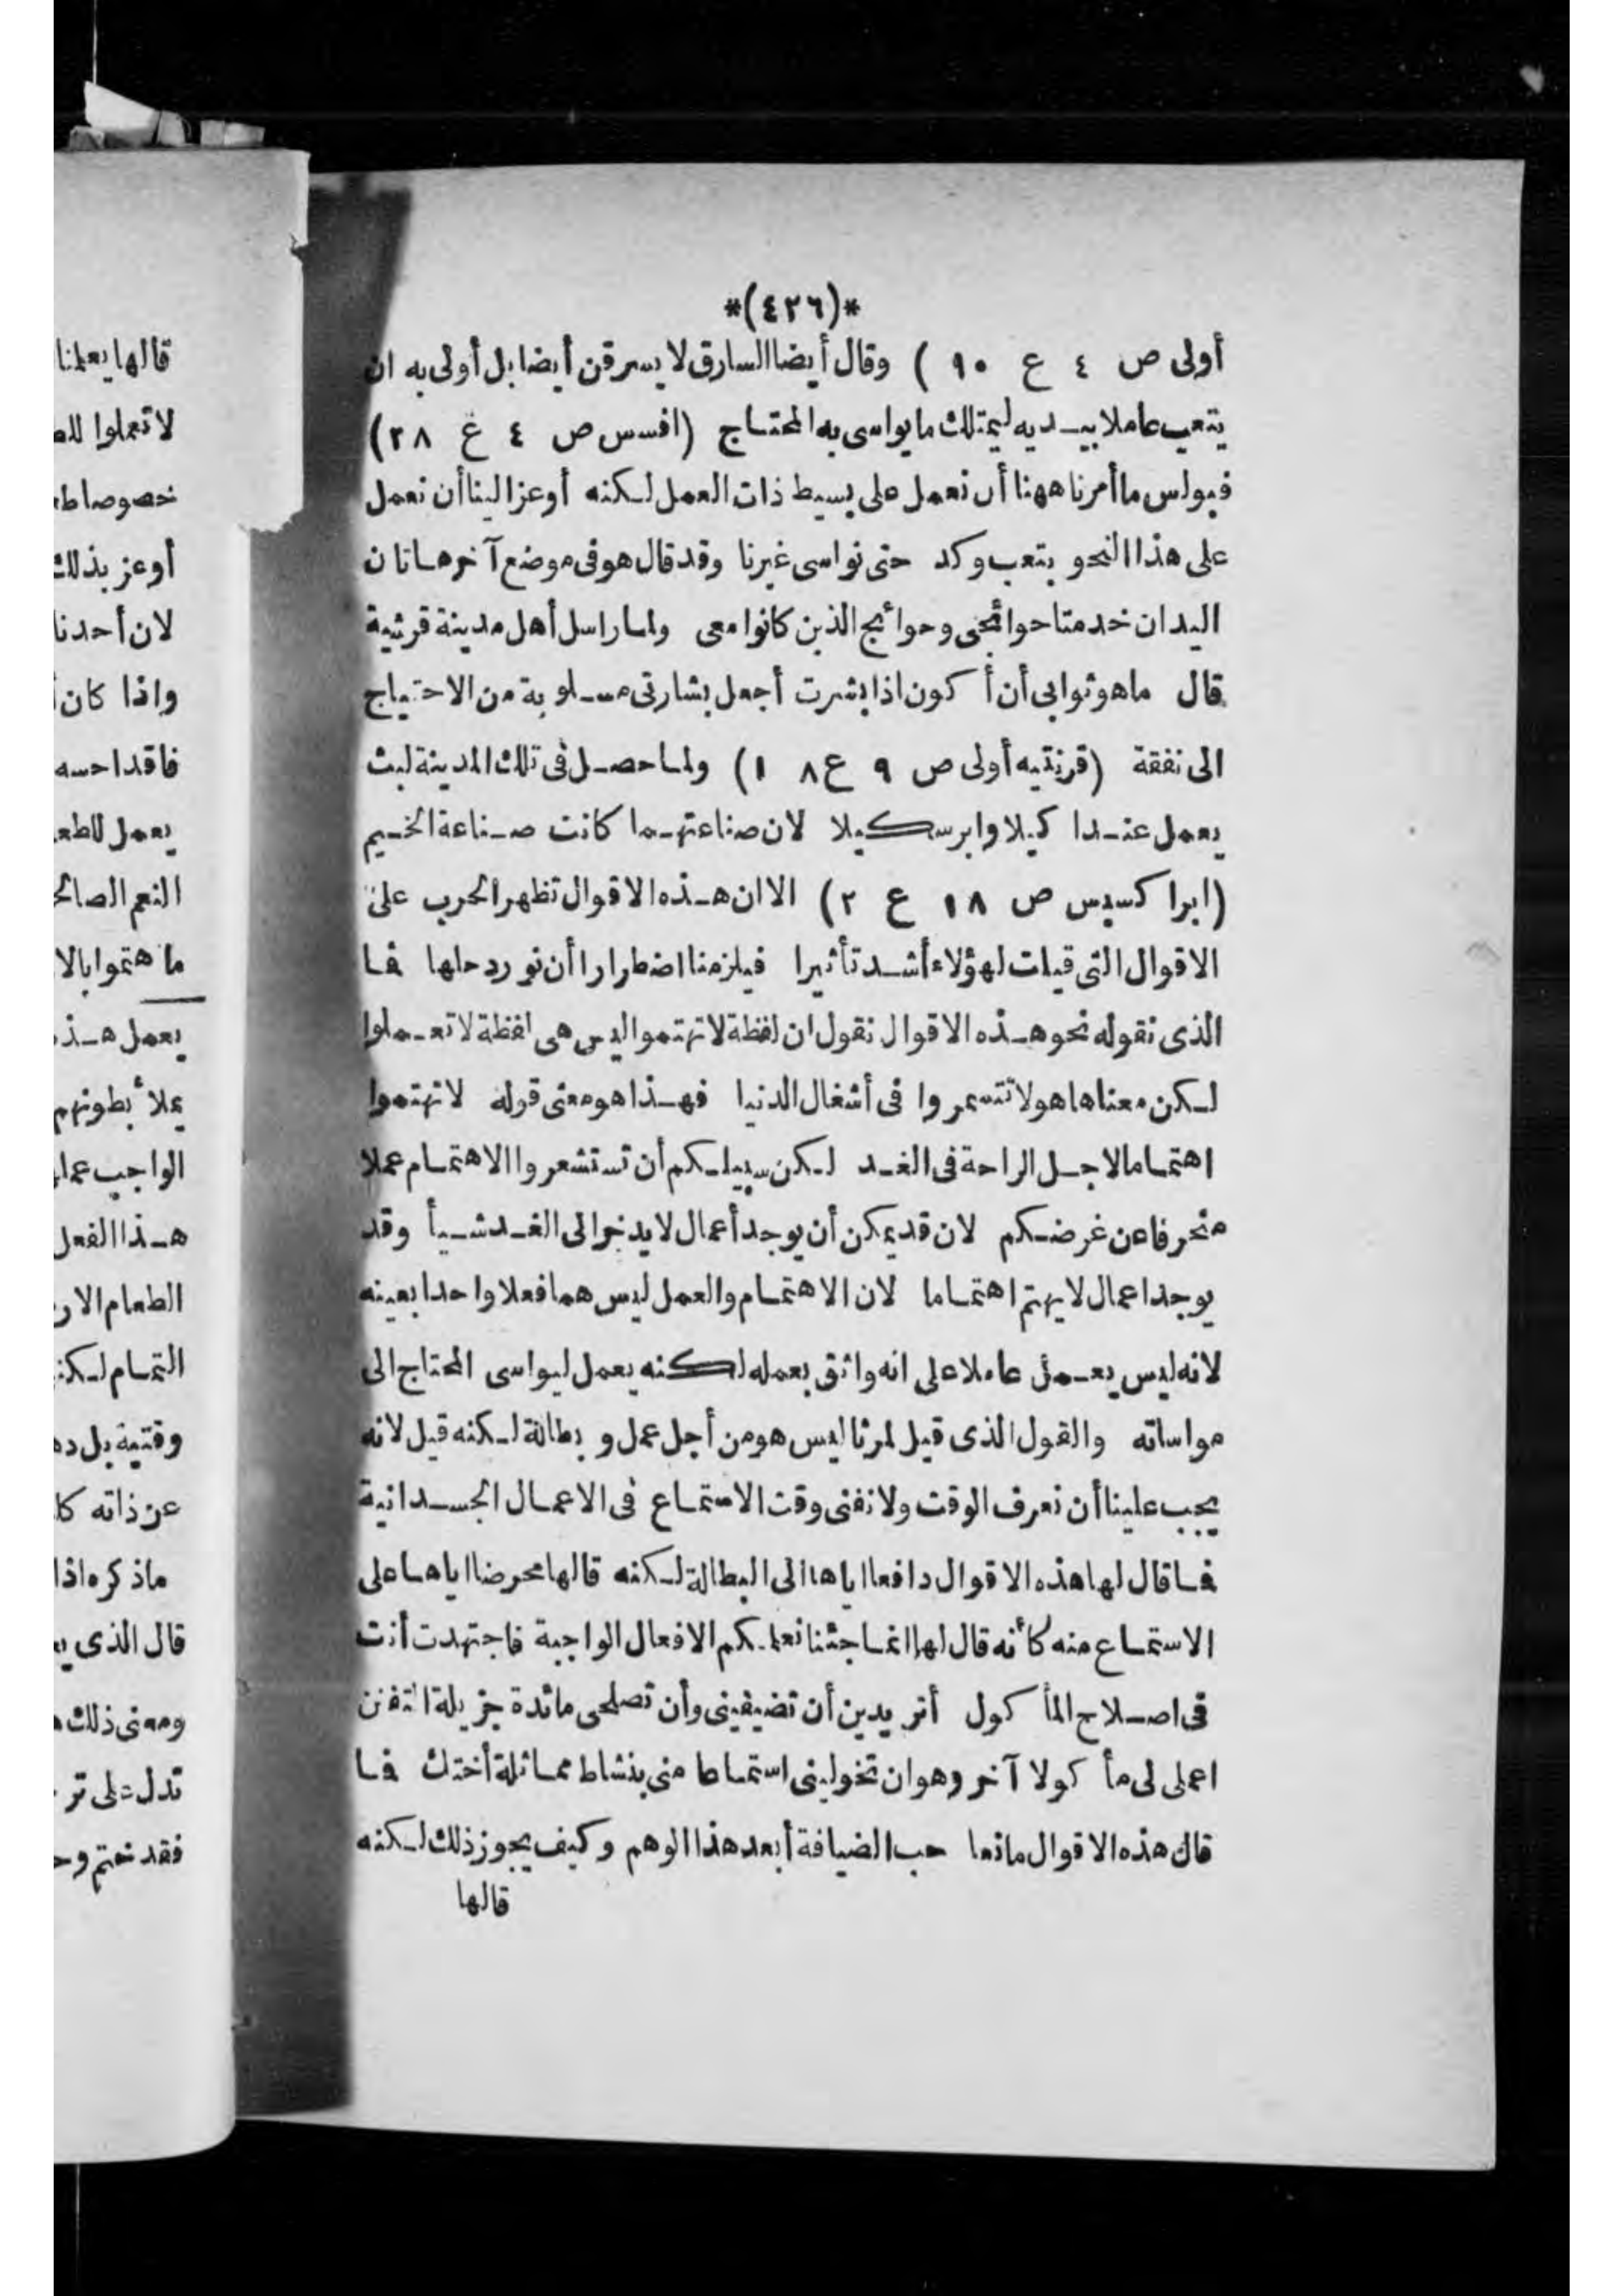 *(٤٢٦)*
أولى ص ٤ ع ٩٠ ) وقال أيضا السارق لا يسرقن أيضا بل أولى به ان
يتعب عاملا بيـديه ليمتلك ما يواسى به المحتاج (افسس ص ٤ غ ٢٨)
فبولس ما أمرنا ههنا أن نعمل على بسيط ذات العمل لـكنه أوعز الينا أن نعمل
على هذا النحو بتعب وكد حتى نواسى غيرنا وقد قال هو فى موضع آخر هاتان
اليدان خدمتا حوائجى وحوائج الذين كانوا معى ولما راسل أهل مدينة قرنثية
قال ما هو ثوابى أن أكون اذا بشرت أجعل بشارتى مسـلوبة من الاحتياج
الى نفقة (قرنتيه أولى ص ٩ ع ١٨) ولما حصـل فى تلك المدينة لبث
يعمل عنـد اكيلا وابرسكيلا لان صناعتهـما كانت صـناعة الخـيم
(ابراكسيس ص ١٨ ع ٢) الا ان هـذه الاقوال تظهر الحرب على
الاقوال التى قيلت لهؤلاء أشـد تأثيرا فيلزمنا اضطرارا أن نورد حلها فما
الذى نقوله نحو هـذه الاقوال نقول ان لفظة لا تهتموا ليس هى لفظة لا تعـملوا
لـكن معناها هو لا تتسمروا فى أشغال الدنيا فهـذا هو معنى قوله لا تهتموا
اهتماما لاجـل الراحة فى الغـد لـكن سبيلـكم أن تستشعروا الاهتمام عملا
منحرفا عن غرضـكم لان قد يمكن أن يوجد أعمال لا يدخر الى الغـد شـيأ وقد
يوجد اعمال لا يهتم اهتماما لان الاهتمام والعمل ليس هما فعلا واحدا بعينه
لانه ليس يعـمل عاملا على انه واثق بعمله لكنه يعمل ليواسى المحتاج الى
مواساته والقول الذى قيل لمرثا ليس هو من أجل عمل وبطالة لـكنه قيل لانه
يجب علينا أن نعرف الوقت ولا نفنى وقت الاستماع فى الاعمال الجسـدانية
فما قال لها هذه الاقوال دافعا اياها الى البطالة لـكنه قالها محرضا اياها على
الاستماع منه كأنه قال لها انما جئنا نعلمـكم الافعال الواجبة فاجتهدت أنت
فى اصـلاح المأكول أتريدين أن تضيفينى وأن تصلحى مائدة جزيلة التفنن
اعملى لى مأكولا آخر وهو ان تخولينى استماعا منى بنشاط مماثلة أختك فما
قال هذه الاقوال مانعا حب الضيافة أبعد هذا الوهم وكيف يجوز ذلك لـكنه
قالها
قالها يعلمنا
خصوصا
أوعز بذلك
لان أحدنا
واذا كان
ما هتموا بالا
يملأ بطونهم
هـذا الفعل
وقتية بل
ما ذكره اذا
قال الذى
ومعنى ذلك